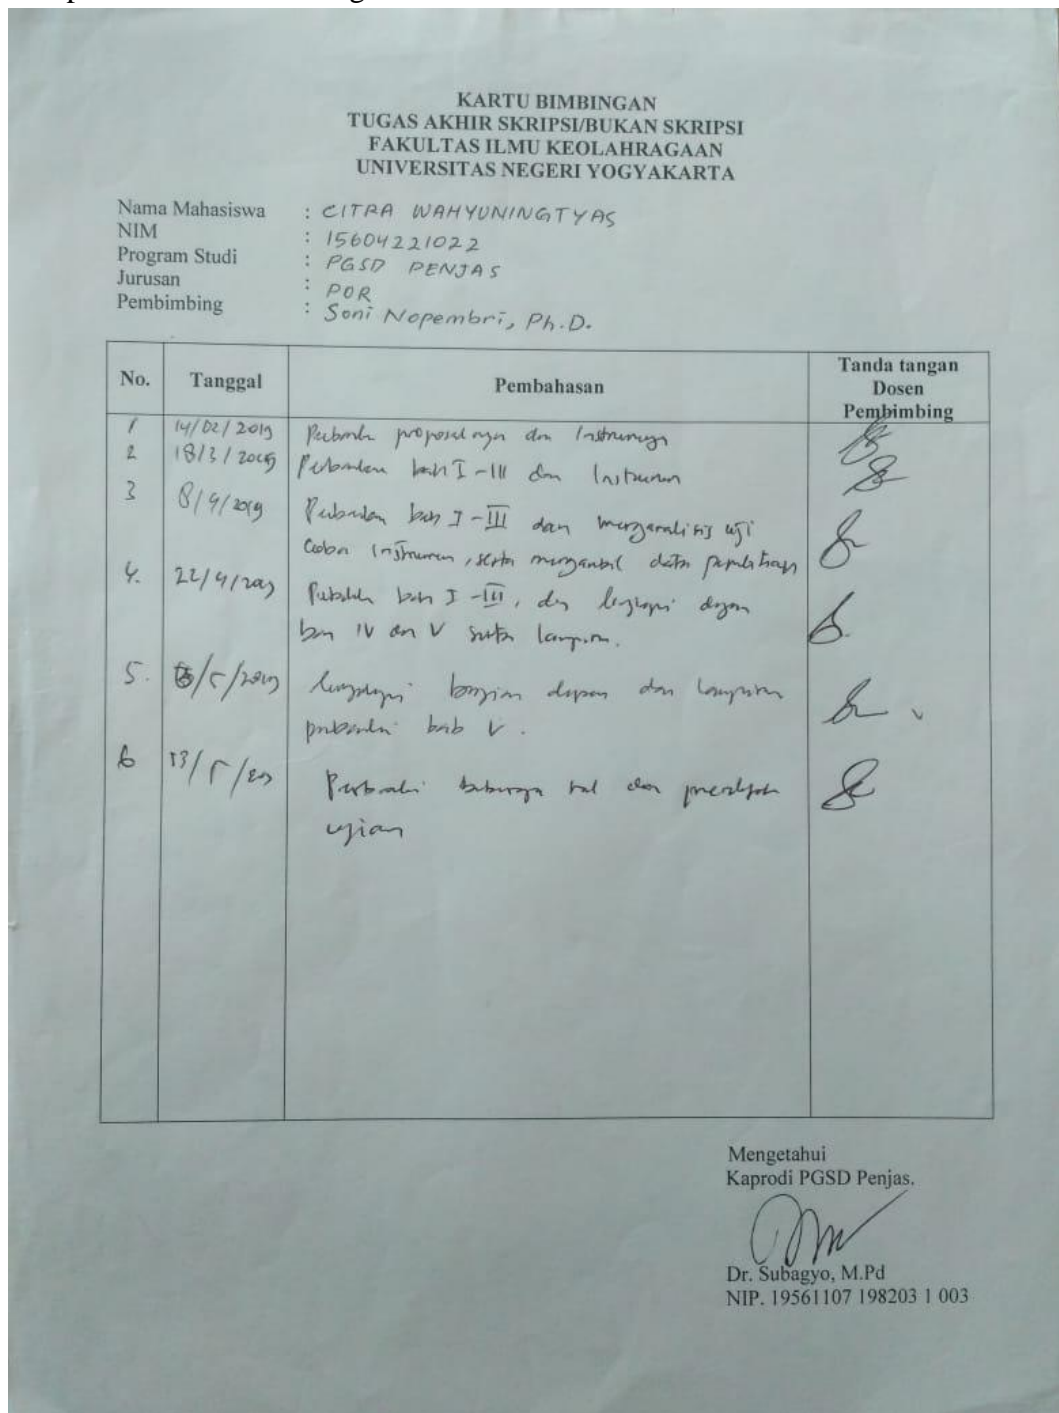 KARTU BIMBINGAN
TUGAS AKHIR SKRIPSI/BUKAN SKRIPSI
FAKULTAS ILMU KEOLAHRAGAAN
UNIVERSITAS NEGERI YOGYAKARTA
Nama Mahasiswa : CITRA WAHYUNINGTYAS
NIM : 15604221022
Program Studi : PGSD PENJAS
Jurusan : POR
Pembimbing : Soni Nopembri, Ph.D.
No. Tanggal Pembahasan Tanda tangan Dosen Pembimbing
1 14/02/2019 proposalnya dan Instrumennya
2 18/3/2019 bab I-III dan Instrumen
3 8/4/2019 bab I-III dan menganalisis uji
coba instrumen, serta mengambil data penelitian
4. 22/4/2019 bab I-III, dan lengkapi dengan
bab IV dan V serta lampiran.
5. /5/2019 lengkapi bagian depan dan lampiran
perbaiki bab V.
6 13/5/2019 Perbaiki beberapa hal dan
ujian
Mengetahui
Kaprodi PGSD Penjas.
Dr. Subagyo, M.Pd
NIP. 19561107 198203 1 003